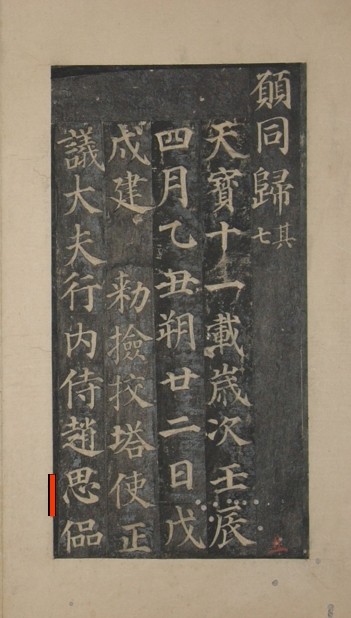 願同歸其七
天寶十一載歲次壬辰
四月乙丑朔廿二日戊
戍建 勅撿挍塔使正
議大夫行內侍趙思偘